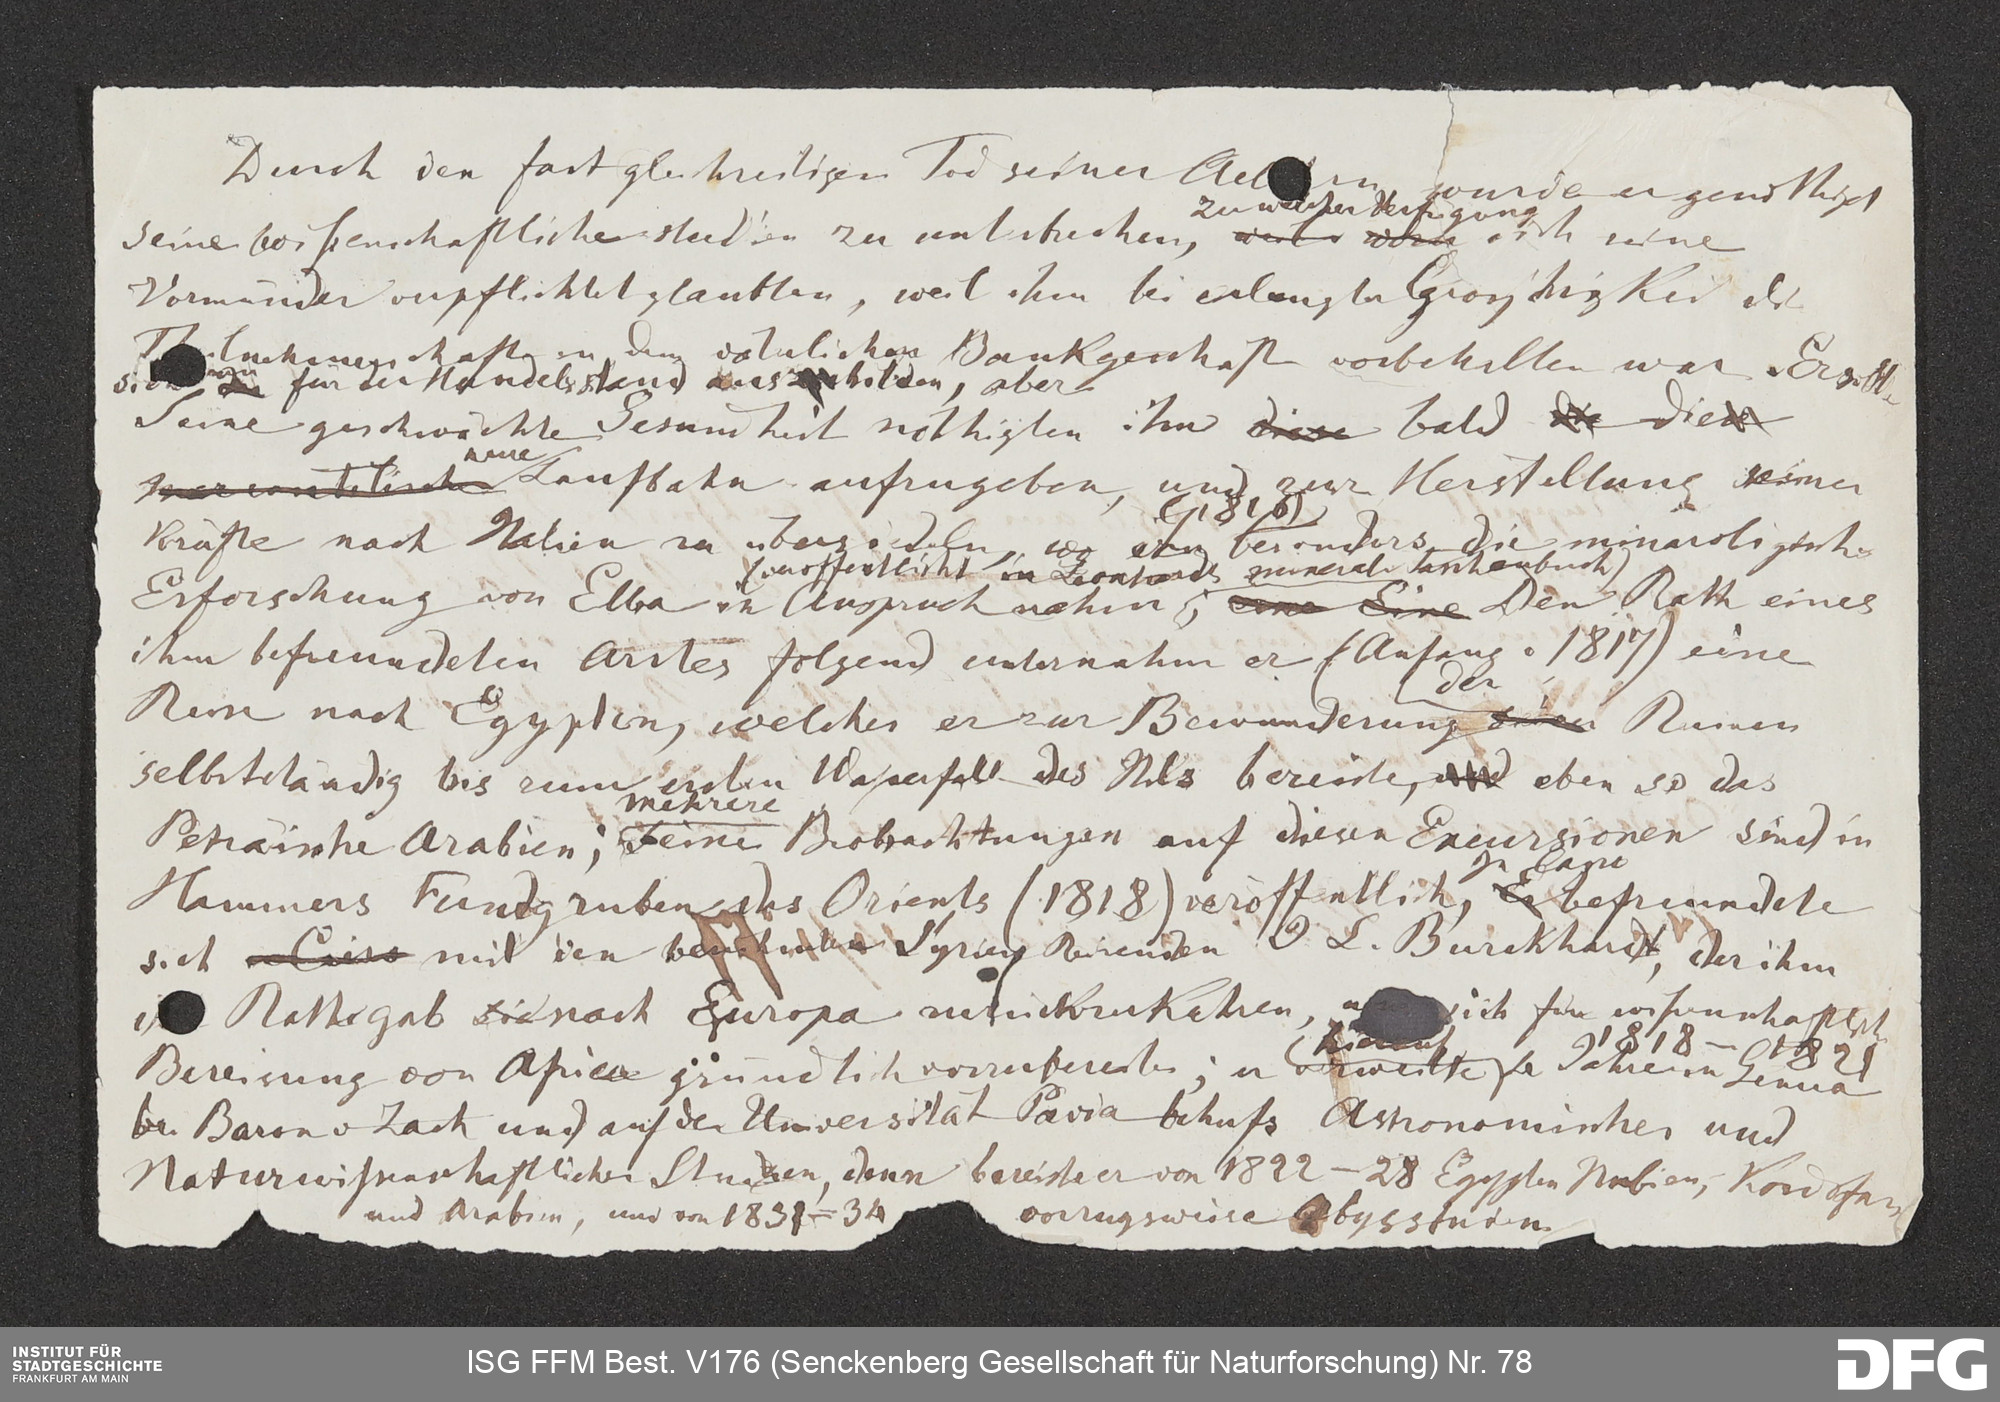 Durch den fast gleichzeitigen Tod seiner Aeltern wurde er genöthigt
zu welcher Verfügung
seine wissenschaftliche studien zu unterbrechen, sich seine
Vormünder verpflichtet glaubten, weil ihm bei erlangter Grosjährigkeit die
Theilnehmerschaft an dem väterlichen Bankgeschäft vorbehalten war. Er sollte
sich nun für den Handelsstand auszubilden, aber
Seine geschwächte Gesundheit nöthigten ihn diese bald die diese
neue
mercantilische Laufbahn aufzugeben, und zur Herstellung seiner
(1816)
Kräfte nach Italien zu übersiedeln, wo ihn besonders die mineralogische
(veröffentlicht in Leonhards mineral. Taschenbuch)
Erforschung von Elba in Anspruch nahm; eine Eine Den Rath eines
ihm befreundeten Arztes folgend unternahm er (Anfang 1817) eine
der
Reise nach Egypten, welches er zur Bewunderung Ruinen
selbstständig bis zum ersten Wasserfall des Nils bereiste, und eben so das
mehrere
Peträische Arabien; seine Beobachtungen auf diesen Excursionen sind in
In Cairo
Hammers Fundgruben des Orients (1818) veröffentlich, Er befreundete
sich mit den berühmten Syrien Reisenden L. Burckhardt, der ihm
den Rath gab nach Europa zurückzukehren, um sich für wissenschaftlich
hierauf 1818 – 1821
Bereisung von Africa gründlich vorzubereiten; er verweilte die Jahre in Genua
bei Baron v Zach und auf der Universität Pavia behufs Astronomischer und
Naturwissenschaftlicher Studien, dann bereiste er von 1822 – 28 Egypten Nubien, Kordofan
und Arabien, und von 1831 – 34 vorzugsweise Abyssinien
ISG FFM Best. V176 (Senckenberg Gesellschaft für Naturforschung) Nr. 78
INSTITUT FÜR
STADTGESCHICHTE
FRANKFURT AM MAIN
DFG